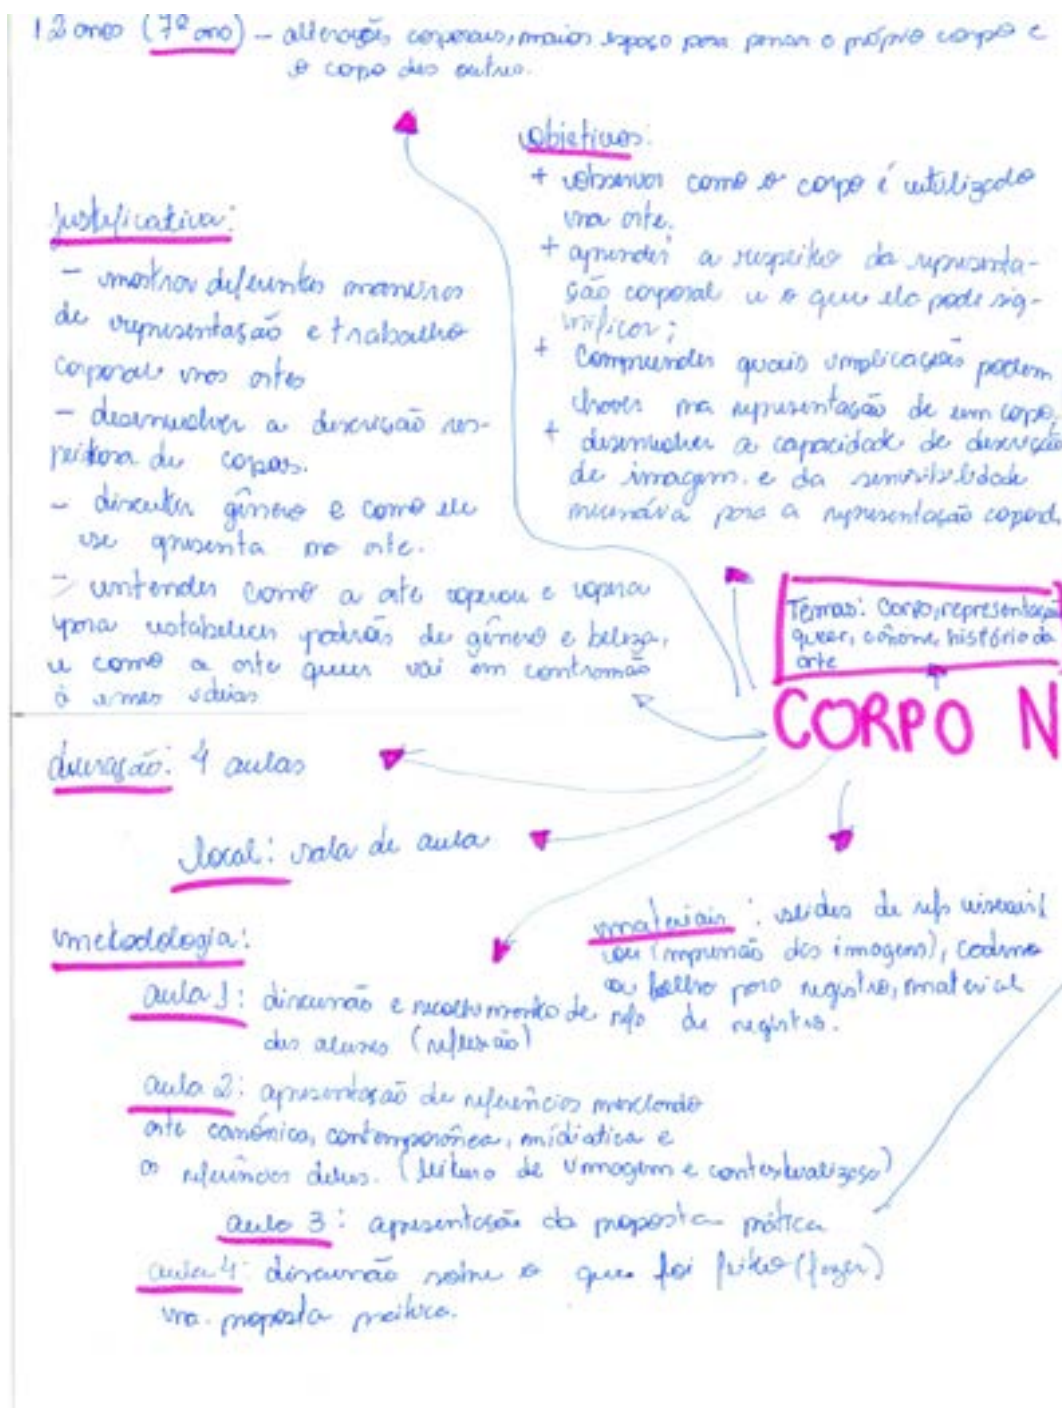 12 anos (7º ano) – alterações corporais, maior espaço para pensar o próprio corpo e
o corpo dos outros.
objetivos:
+ observar como o corpo é utilizado
na arte.
+ aprender a respeito da representa-
ção corporal e o que ela pode sig-
nificar;
+ compreender quais implicações podem
haver na representação de um corpo.
+ desenvolver a capacidade de descrição
de imagem e da sensibilidade
necessária para a representação corporal
justificativa:
– mostrar diferentes maneiras
de representação e trabalho
corporal nas artes
– desenvolver a descrição res-
peitosa de corpos.
– discutir gênero e como ele
se apresenta na arte.
– entender como a arte operou e opera
para estabelecer padrões de gênero e beleza,
e como a arte queer vai em contramão
à essas ideias
Temas: Corpo, representação
queer, cânone, história da
arte
CORPO N
duração: 4 aulas
local: sala de aula
materiais: slides de refs visuais
ou (impressão das imagens), caderno
ou folha para registro, material
de registro.
metodologia:
aula 1: discussão e recolhimento de refs
dos alunos (reflexão)
aula 2: apresentação de referências mesclando
arte canônica, contemporânea, midiatica e
as referências deles. (leitura de imagem e contextualização)
aula 3: apresentação da proposta prática
aula 4: discussão sobre o que foi feito (fazer)
na proposta prática.